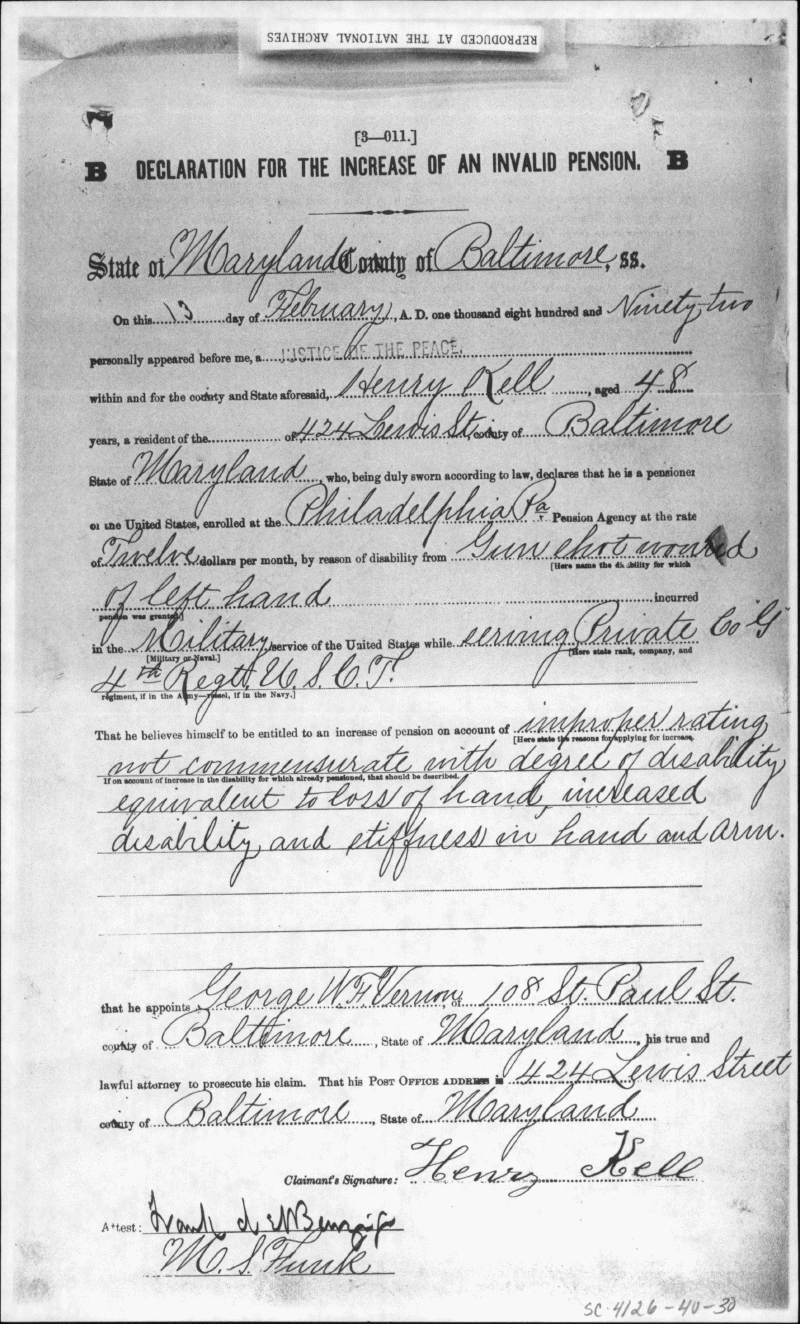 REPRODUCED AT THE NATIONAL ARCHIVES
[3—011.]
B DECLARATION FOR THE INCREASE OF AN INVALID PENSION. B
State of Maryland County of Baltimore, ss.
On this 13 day of February, A. D. one thousand eight hundred and Ninety-two
personally appeared before me, a JUSTICE OF THE PEACE
within and for the county and State aforesaid, Henry Kell, aged 48
years, a resident of the of 424 Lewis St. county of Baltimore
State of Maryland, who, being duly sworn according to law, declares that he is a pensioner
of the United States, enrolled at the Philadelphia Pa Pension Agency at the rate
of Twelve dollars per month, by reason of disability from Gun shot wound
[Here name the disability for which
of left hand incurred
pension was granted]
in the Military service of the United States while serving Private Co G
[Military or Naval.] [Here state rank, company, and
4th Regtt. U. S. C. T.
regiment, if in the Army—vessel, if in the Navy.]
That he believes himself to be entitled to an increase of pension on account of improper rating
[Here state the reasons for applying for increase.
not commensurate with degree of disability
If on account of increase in the disability for which already pensioned, that should be described.
equivalent to loss of hand, increased
disability and stiffness in hand and arm.
that he appoints George W. F. Vernon, of 108 St. Paul St.
county of Baltimore, State of Maryland, his true and
lawful attorney to prosecute his claim. That his POST OFFICE ADDRESS is 424 Lewis Street
county of Baltimore, State of Maryland
Claimant's Signature: Henry Kell
Attest: Frank
M. S. Funk
SC-4126-40-30